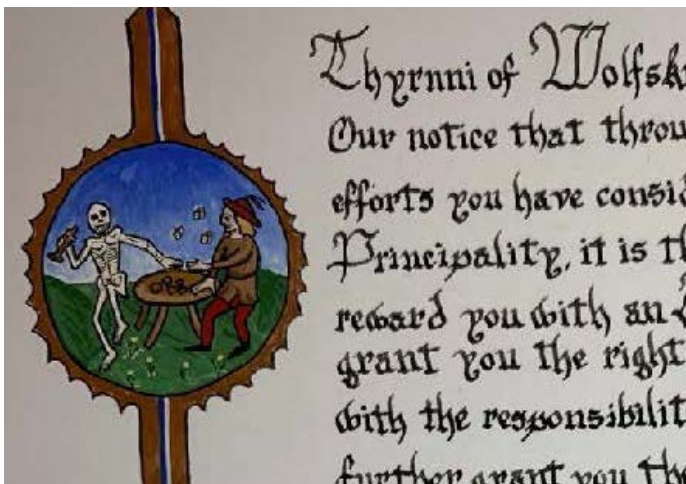 Thyrnni of Wolfsk
Our notice that throu
efforts you have consid
Principality, it is th
reward you with an
grant you the right
with the responsibilit
further grant you the